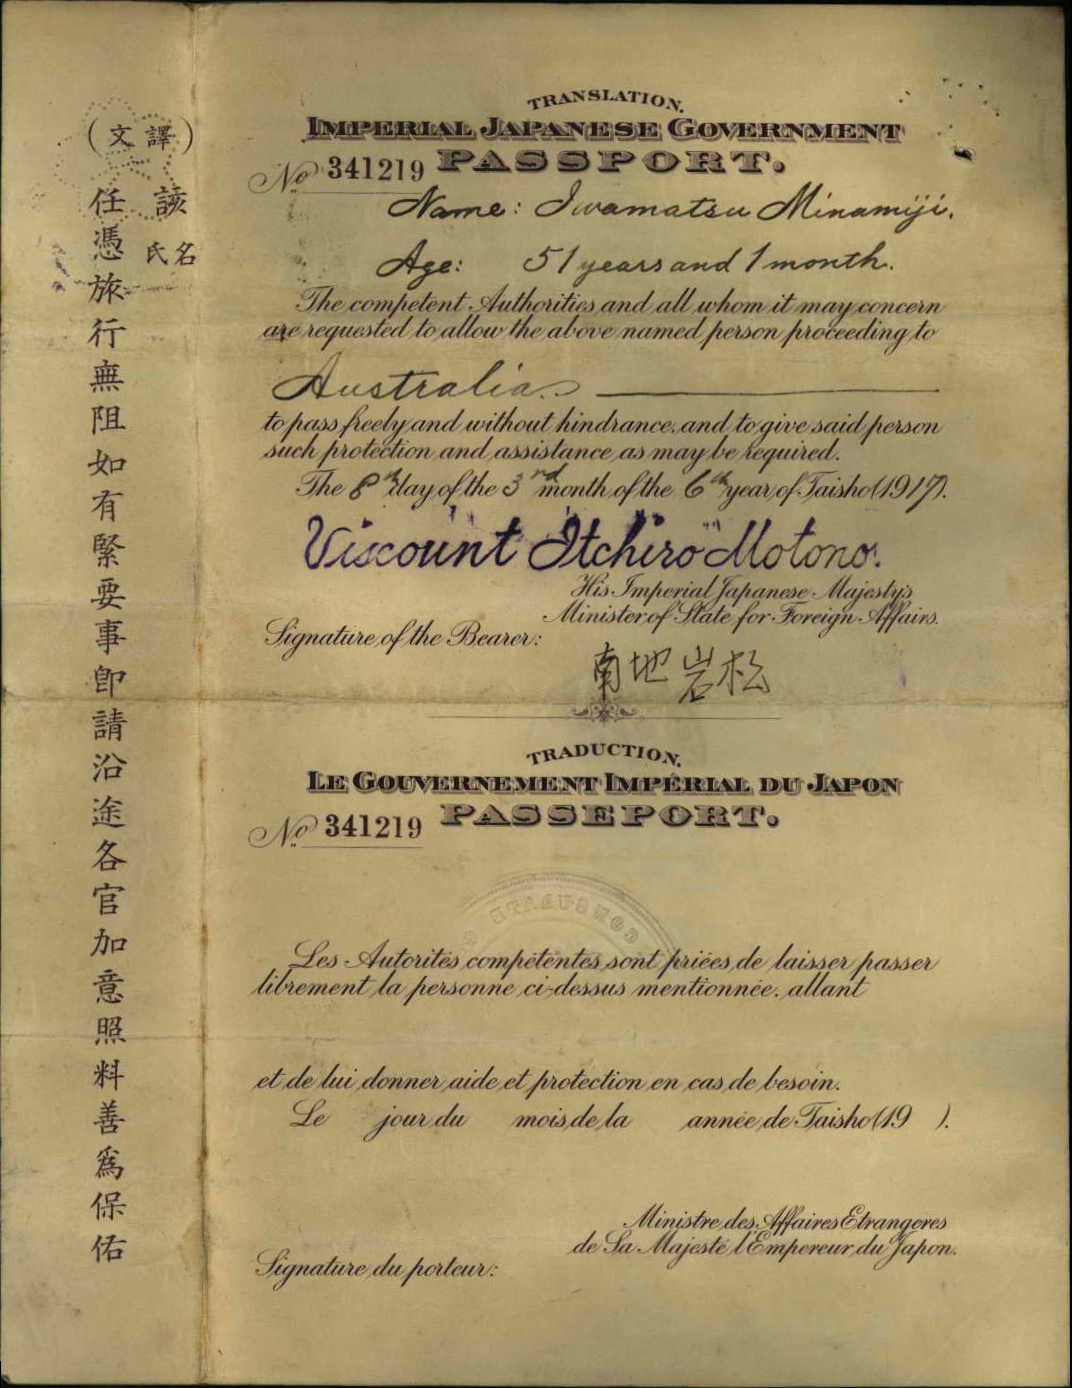 (譯文)
該
名氏
任憑旅行無阻如有緊要事卽請沿途各官加意照料善爲保佑
TRANSLATION.
IMPERIAL JAPANESE GOVERNMENT
PASSPORT.
No 341219
Name: Iwamatsu Minamiji.
Age: 51 years and 1 month.
The competent Authorities and all whom it may concern
are requested to allow the above named person proceeding to
Australia.
to pass freely and without hindrance, and to give said person
such protection and assistance as may be required.
The 8th day of the 3rd month of the 6th year of Taisho (1917).
Viscount Itchiro Motono.
His Imperial Japanese Majesty's
Minister of State for Foreign Affairs.
Signature of the Bearer:
南地岩松
TRADUCTION.
LE GOUVERNEMENT IMPÉRIAL DU JAPON
PASSEPORT.
No 341219
Les Autorités compétentes sont priées de laisser passer
librement la personne ci-dessus mentionnée, allant
et de lui donner aide et protection en cas de besoin.
Le jour du mois de la année de Taisho (19 ).
Ministre des Affaires Etrangeres
de Sa Majesté l'Empereur du Japon.
Signature du porteur: